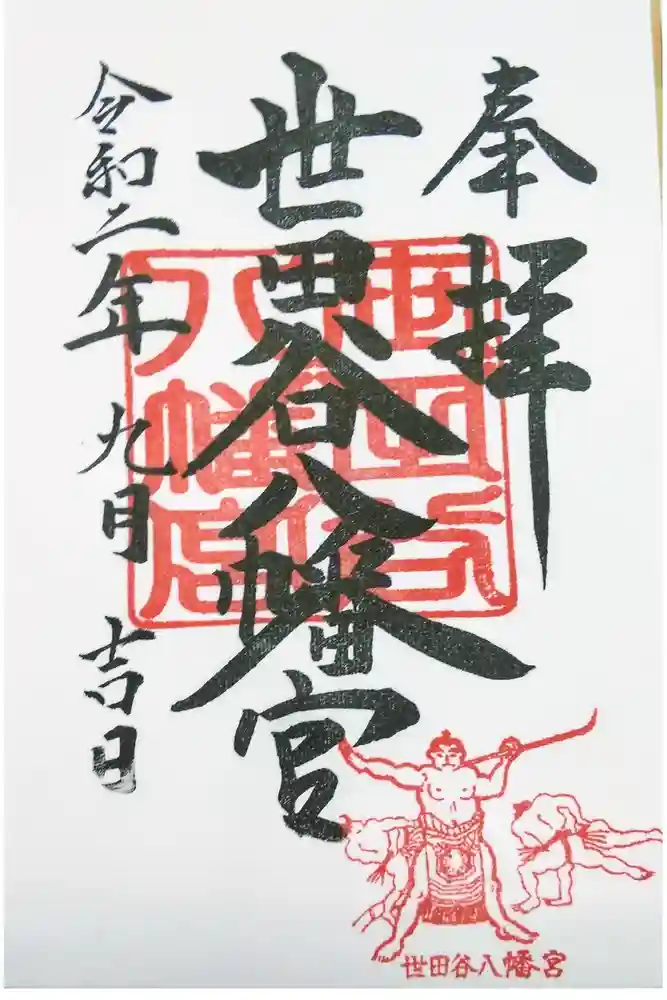 奉拝
世田谷八幡宮
世田谷
八幡宮
令和二年九月吉日
世田谷八幡宮